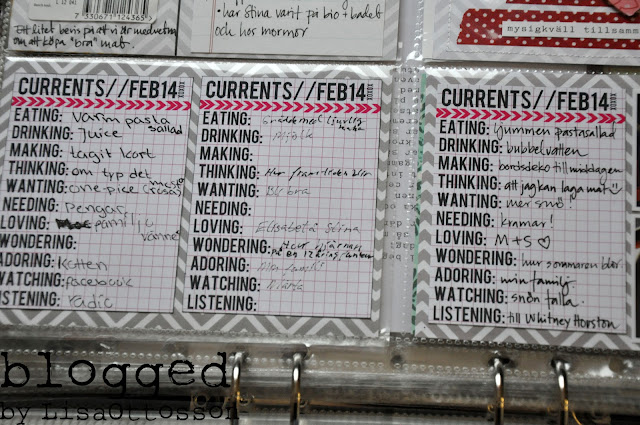 7 330671 124365 >
Ett litet bevis på att vi är medvetna
om att köpa "bra" mat.
• har Stina varit på bio + badet
och hos mormor
mysigkväll tillsamm
CURRENTS//FEB14
EATING: Varm pasta
sallad
DRINKING: Juice
MAKING: tagit kort
THINKING: om typ det
mesta
WANTING: one pice (rosa)
NEEDING: Pengar
LOVING: familj
vänner
WONDERING:
ADORING: Katten
WATCHING: facebook
LISTENING: radio
CURRENTS//FEB14
EATING:
DRINKING: Mjölk
MAKING:
THINKING: Hur framtiden blir
WANTING: Bli bra
NEEDING:
LOVING: Elisabeth Stina
WONDERING: Hur hjärnan
på en 12 åring
ADORING: Min familj
WATCHING:
LISTENING:
CURRENTS//FEB14
EATING: ljummen pastasallad
DRINKING: bubbelvatten
MAKING: bordsdeko till middagen
THINKING: att jag kan laga mat
WANTING: mer snö!
NEEDING: kramar!
LOVING: M+S ♡
WONDERING: hur sommaren blir
ADORING: min familj
WATCHING: snön falla.
LISTENING: till Whitney Houston
blogged
by LisaOttosson